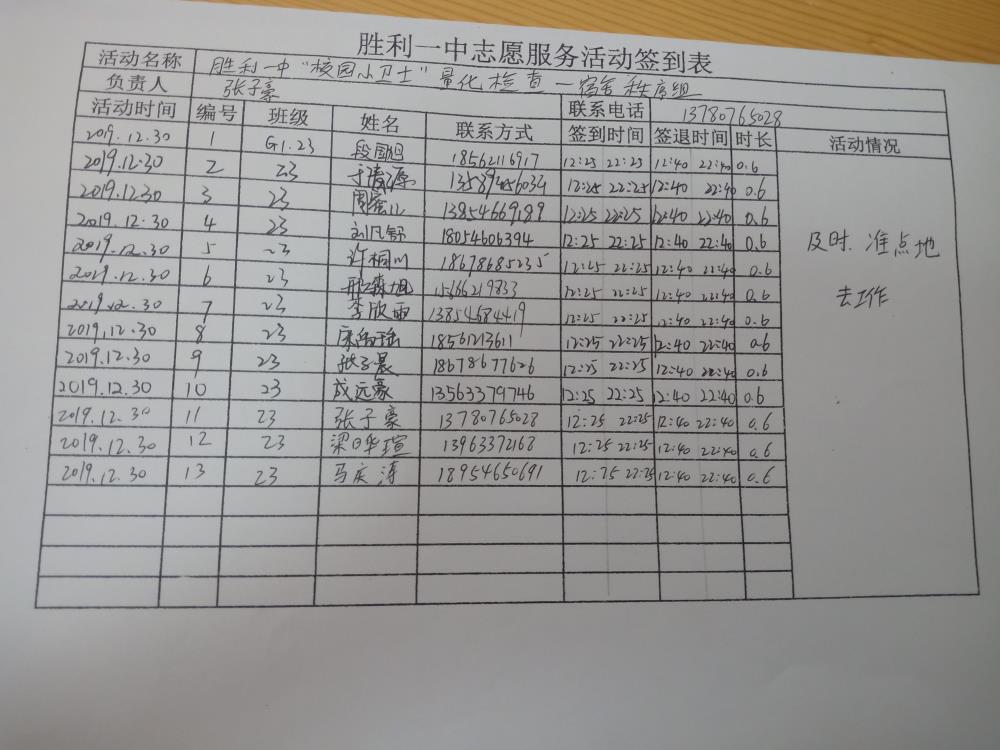 胜利一中志愿服务活动签到表
活动名称 胜利一中“校园小卫士”量化检查—宿舍秩序组
负责人 张子豪 联系电话 13780765028
活动时间 编号 班级 姓名 联系方式 签到时间 签退时间 时长 活动情况
2019.12.30 1 G1.23 段国旭 18562116917 12:25 22:25 12:40 22:40 0.6
2019.12.30 2 23 13589456034 12:25 22:25 12:40 22:40 0.6
2019.12.30 3 23 13854669189 12:25 22:25 12:40 22:40 0.6
2019.12.30 4 23 刘凡舒 18054606394 12:25 22:25 12:40 22:40 0.6
2019.12.30 5 23 许桐川 18678685235 12:25 22:25 12:40 22:40 0.6
2019.12.30 6 23 邢森旭 15666219833 12:25 22:25 12:40 22:40 0.6
2019.12.30 7 23 李欣雨 13854684419 12:25 22:25 12:40 22:40 0.6
2019.12.30 8 23 18561213611 12:25 22:25 12:40 22:40 0.6
2019.12.30 9 23 张子晨 18678677626 12:25 22:25 12:40 22:40 0.6
2019.12.30 10 23 成远豪 13563379746 12:25 22:25 12:40 22:40 0.6
2019.12.30 11 23 张子豪 13780765028 12:25 22:25 12:40 22:40 0.6
2019.12.30 12 23 梁日华瑄 13963372168 12:25 22:25 12:40 22:40 0.6
2019.12.30 13 23 马庆涛 18954650691 12:25 22:25 12:40 22:40 0.6
及时.准点地
去工作